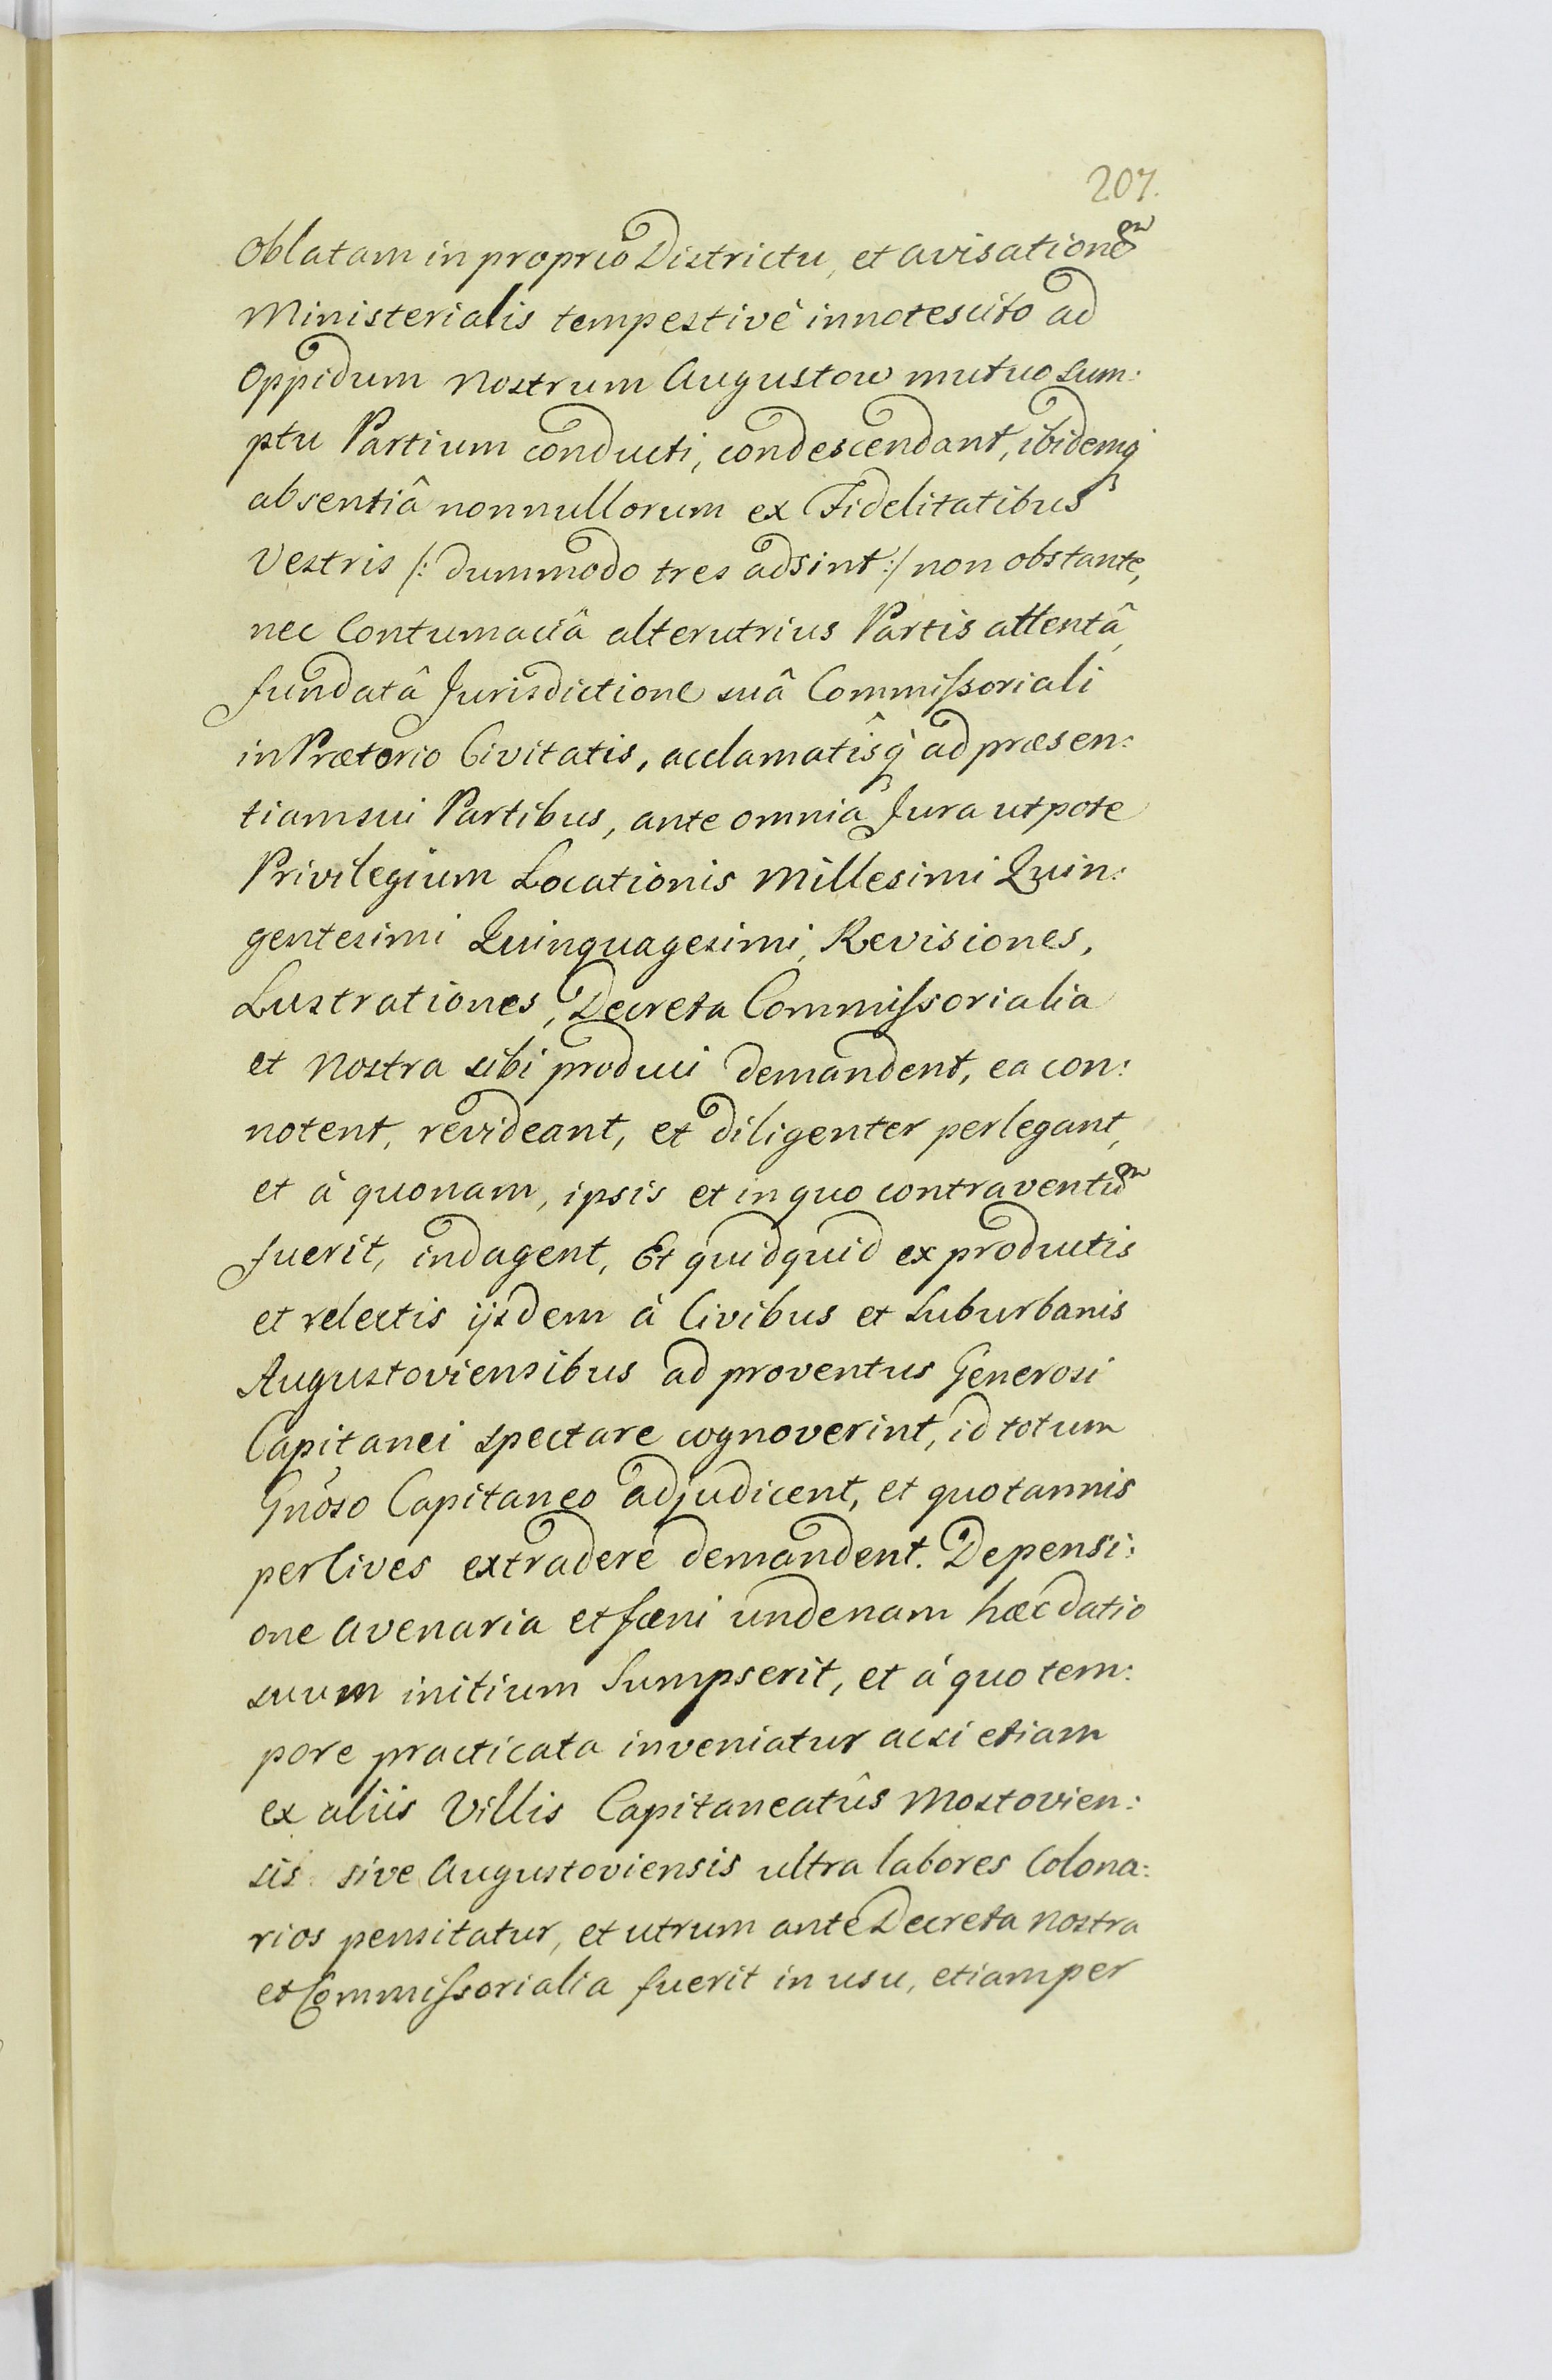 207.
Oblatam in proprio Districtu, et avisationem
Ministerialis tempestivè innotescito ad
Oppidum Nostrum Augustow mutuo sum:
ptu Partium conducti, condescendant, ibidemq́
absentiâ nonnullorum ex Fidelitatibus
Vestris /: dummodo tres adsint :/ non obstante,
nec Contumaciâ alterutrius Partis attentâ,
fundatâ Jurisdictione suâ Commißoriali
in Prætorio Civitatis, acclamatîsq́ ad præsen:
tiam sui Partibus, ante omnia Jura utpote
Privilegium Locationis Millesimi Quin:
gentesimi Quinquagesimi, Revisiones,
Lustrationes, Decreta Commißorialia
et Nostra sibi produci demandent, ea con:
notent, revideant, et diligenter perlegant,
et à quonam, ipsis et in quo contraventum
fuerit, indagent, Et quidquid ex productis
et relectis ijsdem à Civibus et Suburbanis
Augustoviensibus ad proventus Generosi
Capitanei spectare cognoverint, id totum
Gnõso Capitaneo adjudicent, et quotannis
per Cives extradere demandent. Depensi:
one Avenaria et fæni undenam hæc datio
suum initium Sumpserit, et à quo tem:
pore practicata inveniatur acsi etiam
ex aliis Villis Capitaneatûs Mostovien:
sis sive Augustoviensis ultra labores Colona:
rios pensitatur, et utrum ante Decreta Nostra
et Commißorialia fuerit in usu, etiam per